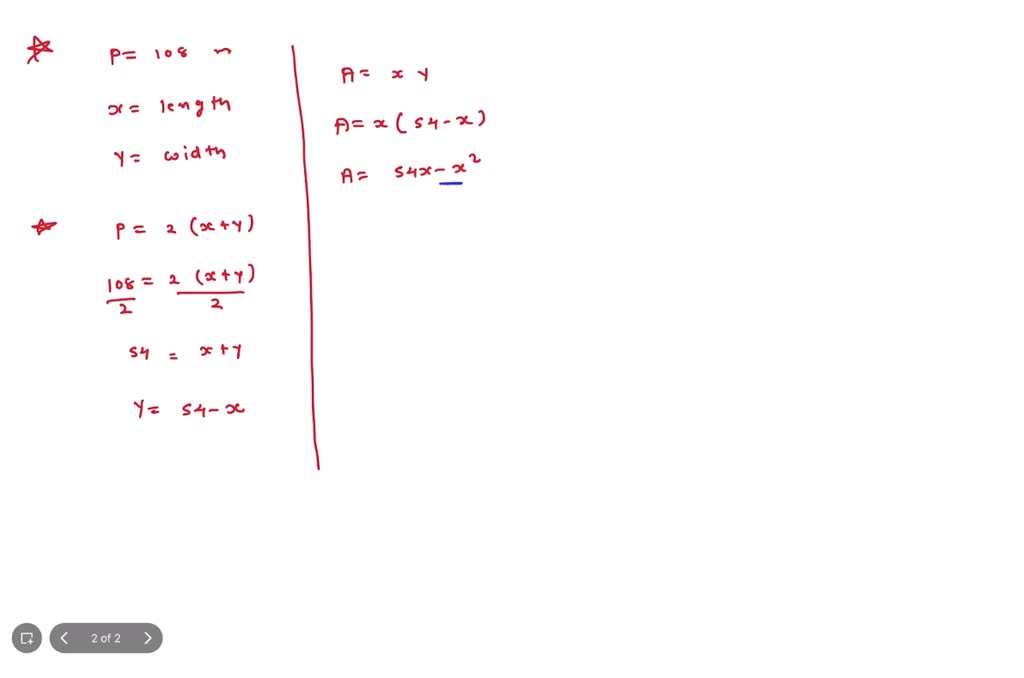 P = 108 m
x = length
y = width
P = 2 (x+y)
108/2 = 2 (x+y)/2
54 = x+y
y = 54-x
A = x y
A = x(54-x)
A = 54x-x²
2 of 2